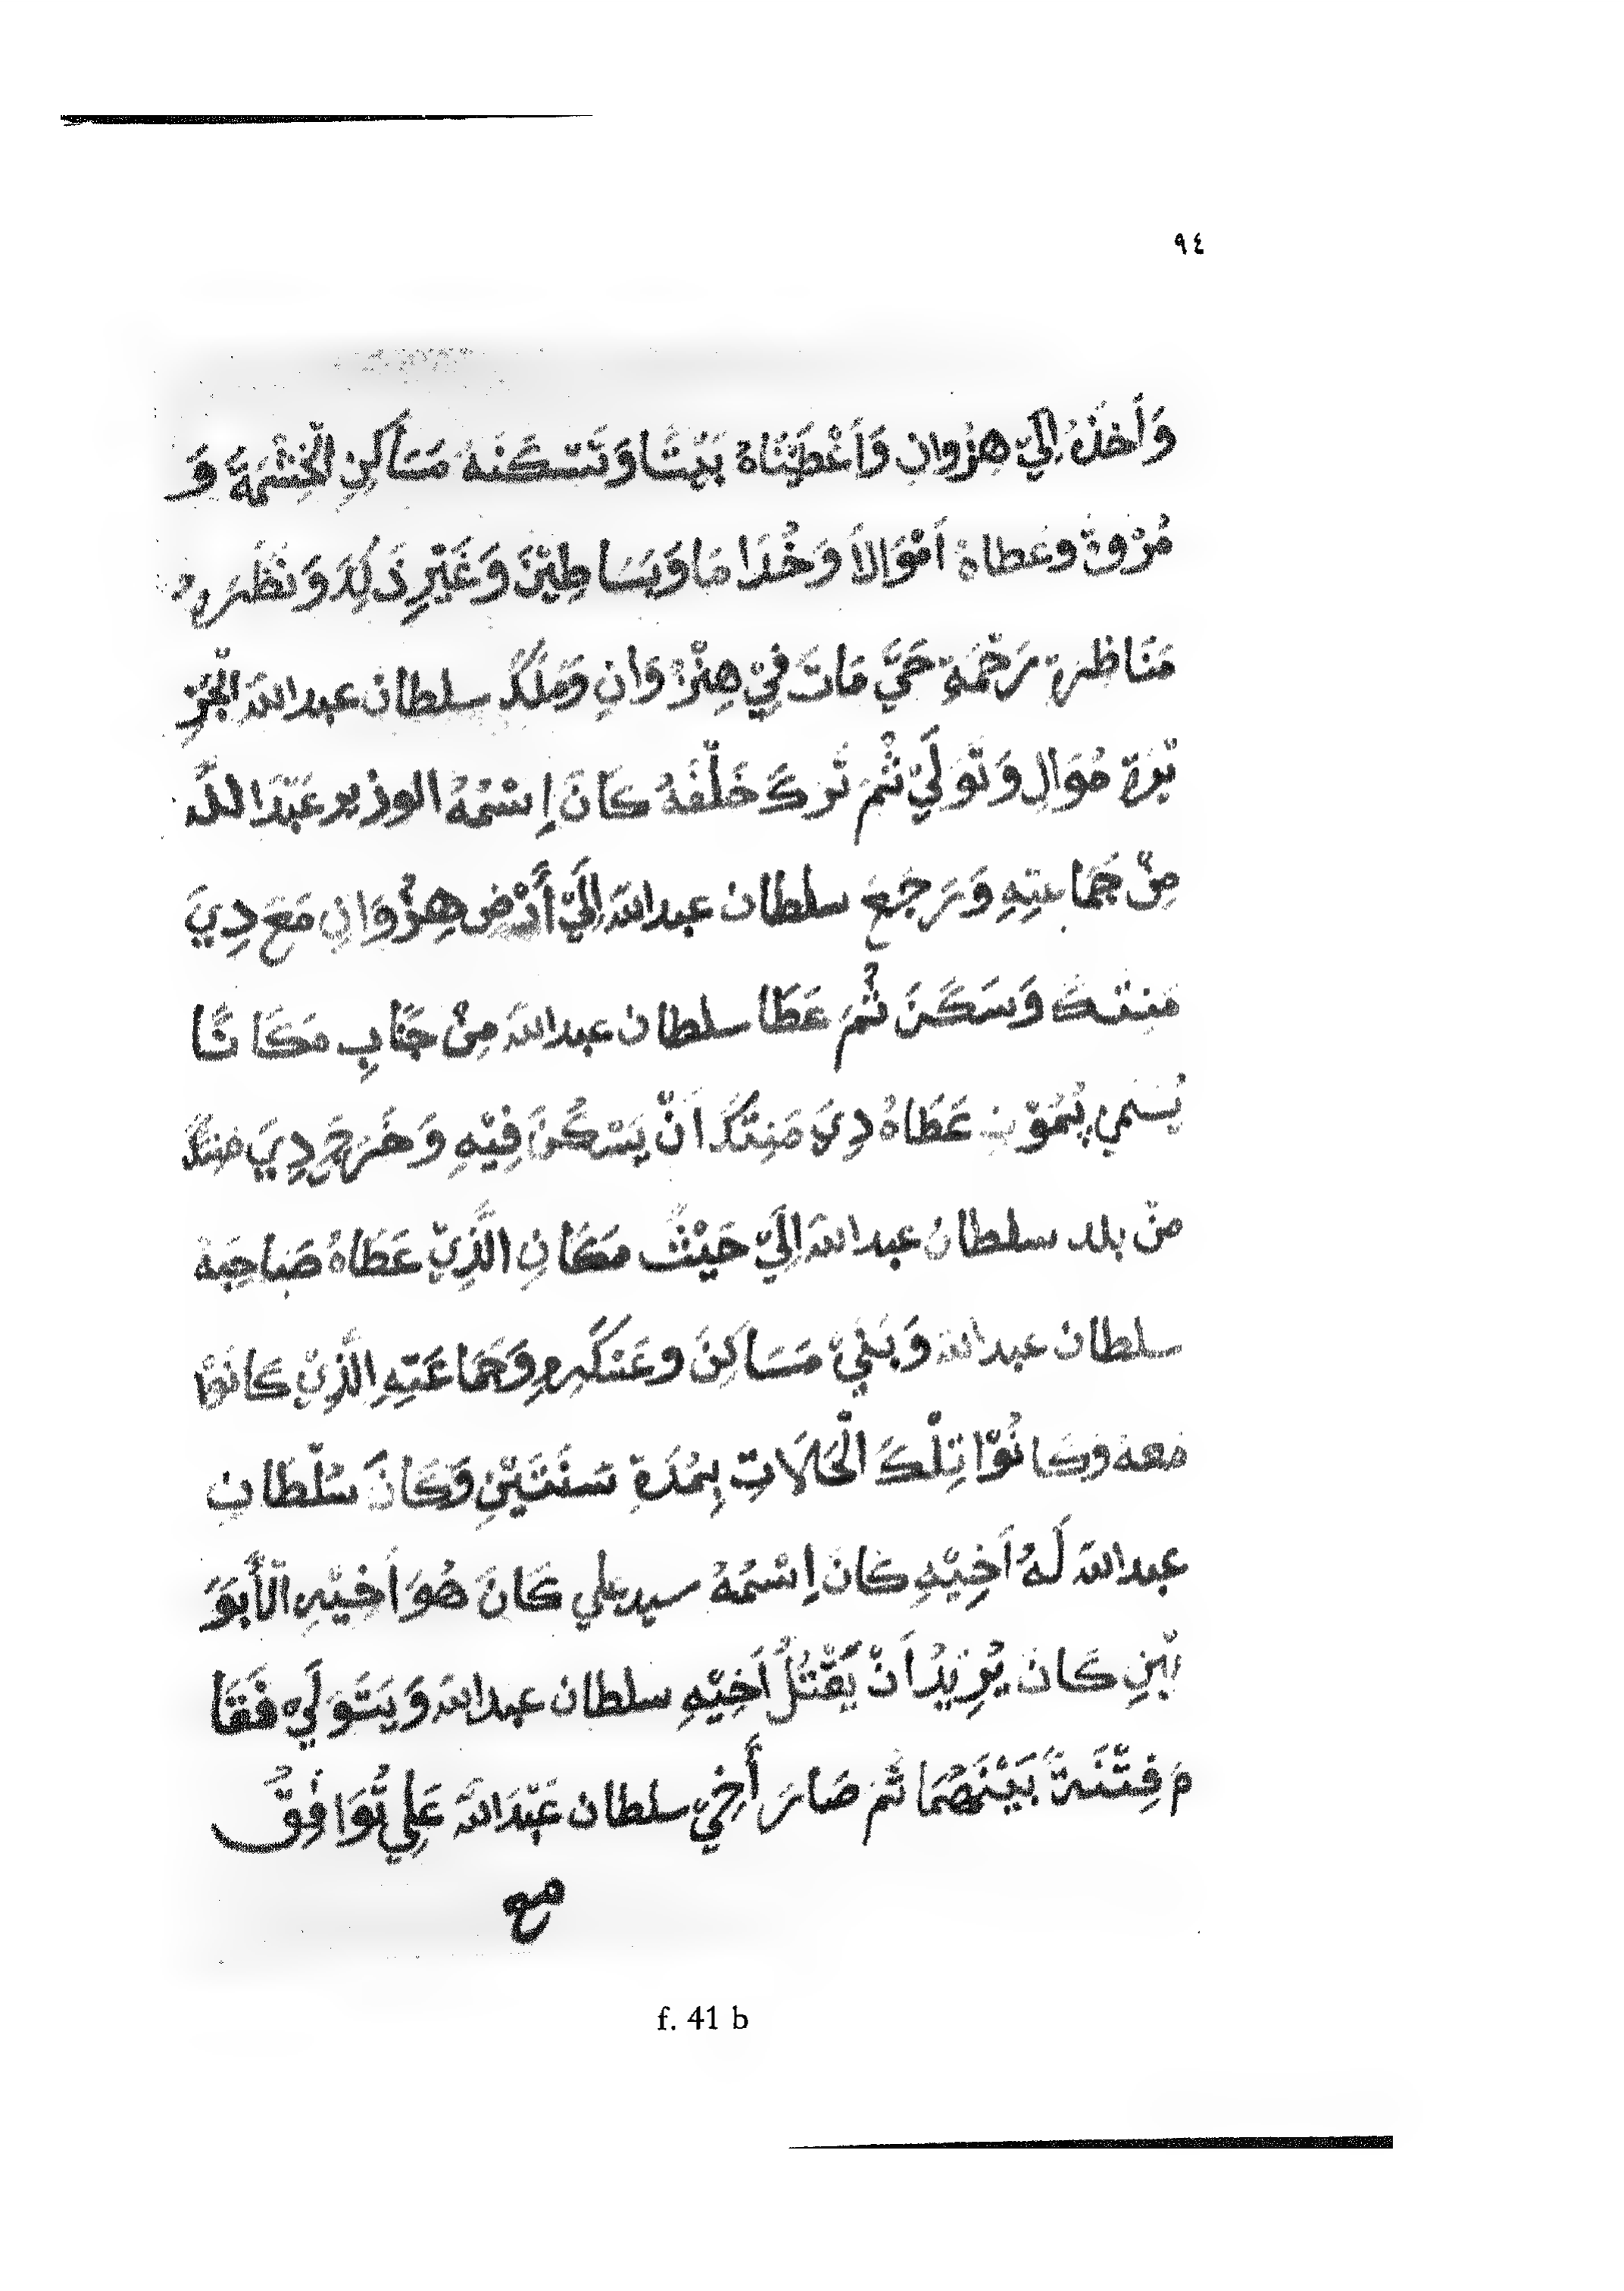 ٩٤
وَأَخَذَهُ اِلَيّْ هِنْزُوانِ وَاَعْطَيْنَاهُ بَيْتًا وَتَسْكَنَهُ مَسَاكِنِ الْخِشْمَةِ وَ
مُرْوَةً وعَطاهُ اَمْوَالاً وَخُدَامَا وَبَسَاطِيْنَ وَغَيْرِ ذَلِكَ وَنَظَرَهُ
مَنَاظِرَةِ رَحْمَةِ حَتَّي مَاتَ فِيْ هِنْزُوَانِ وَمَلَكَ سلطان عبدالله الْجَزِ
يْرَةِ مُوَالِ وَتَوَلَيّْ ثُمَّ تَرَكَ خَلْفَهُ كَانَ اِسْمُهُ الوزير عَبْدَ اللَّه
مِنْ جَمَاعَتِهِ وَرَجَعَ سلطان عبدالله اِلَيّْ أَرْضِ هِنْزُوَانِ مَعَ دِيَ
مَنِتَكَ وَسَكَنَ ثُمَّ عَطَا سلطان عبدالله مِنْ جَنَابِ مَكَانًا
يُسَمِي پُمُوْنِ عَطَاهُ دِيَ مَنِتَكَ اَنْ يَسْكُنَ فِيْهِ وَخَرَجَ دِيَ مَنِتَكَ
مِنْ بلد سلطان عبدالله اِلَيّْ حَيْثُ مَكَانِ الَّذِيْ عَطَاهُ صَاحِبَهُ
سلطان عبدالله وَبَنَيْ مَسَاكِنَ وعَسْكَرِهِ وَجَمَاعَتِهِ الَّذِيْ كَانُوْا
مَعَهُ وَكَانُوْا تِلْكَ الْحَالَاتِ بِمُدَةِ سَنَتَيْنِ وَكَانَ سُلْطَانِ
عبدالله لَهُ اَخِيْهِ كَانَ اِسْمُهُ سيدعلي كَانَ هُوَ اَخِيْهِ الْأَبَوَ
يْنِ كَانَ يُرِيْدُ اَنْ يَقْتُلُ اَخِيْهِ سلطان عبدالله وَيَتَوَلَيْ فَقَا
مَ فِتْنَةً بَيْنَهُمَا ثُمَّ صَارَ أَخِيْ سلطان عَبْدَ اللَّه عَلِي تُوَافِقُ
مع
f. 41 b